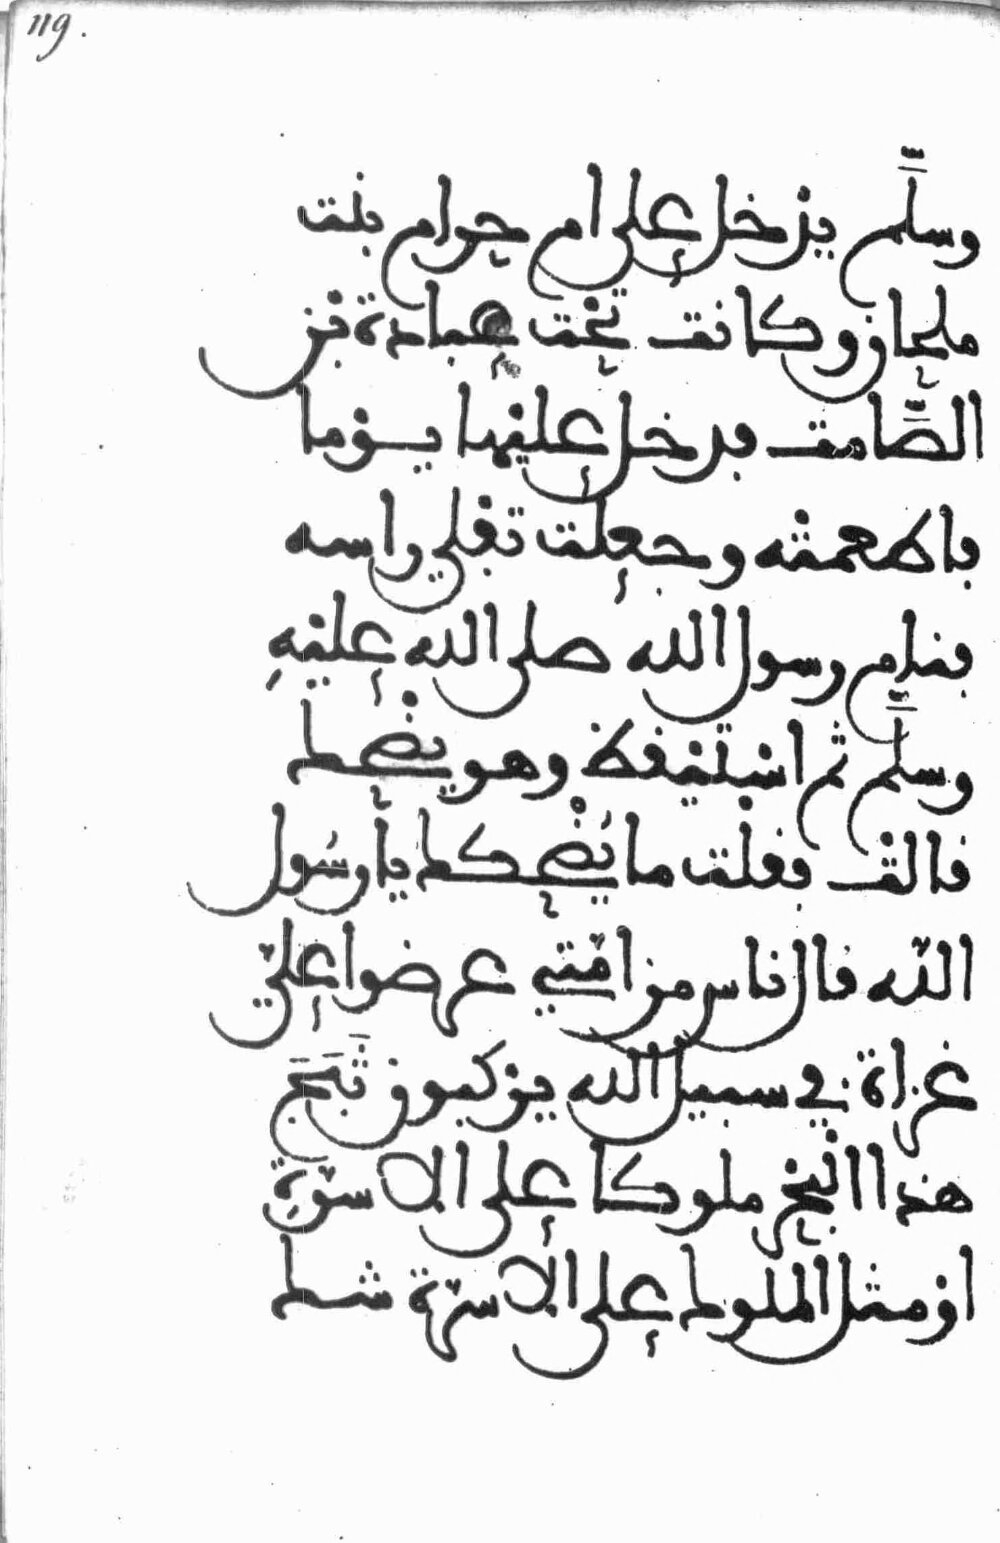 119.
وسلّم يدخل على ام حرام بنت
ملحان وكانت تحت عبادة بن
الصّامت فدخل عليها يوما
فاطعمته وجعلت تفلي راسه
فنام رسول الله صلى الله عليه
وسلّم ثم استيقظ وهو يضحك
قالت فقلت ما يُضْحكك يا رسُول
اللّه قال ناس من امّتي عرضوا عليّ
غزاة في سبيل الله يركبون ثَبَجَ
هذا البحر ملوكا على الاسرّة
او مثل الملوك على الاسرّة شك